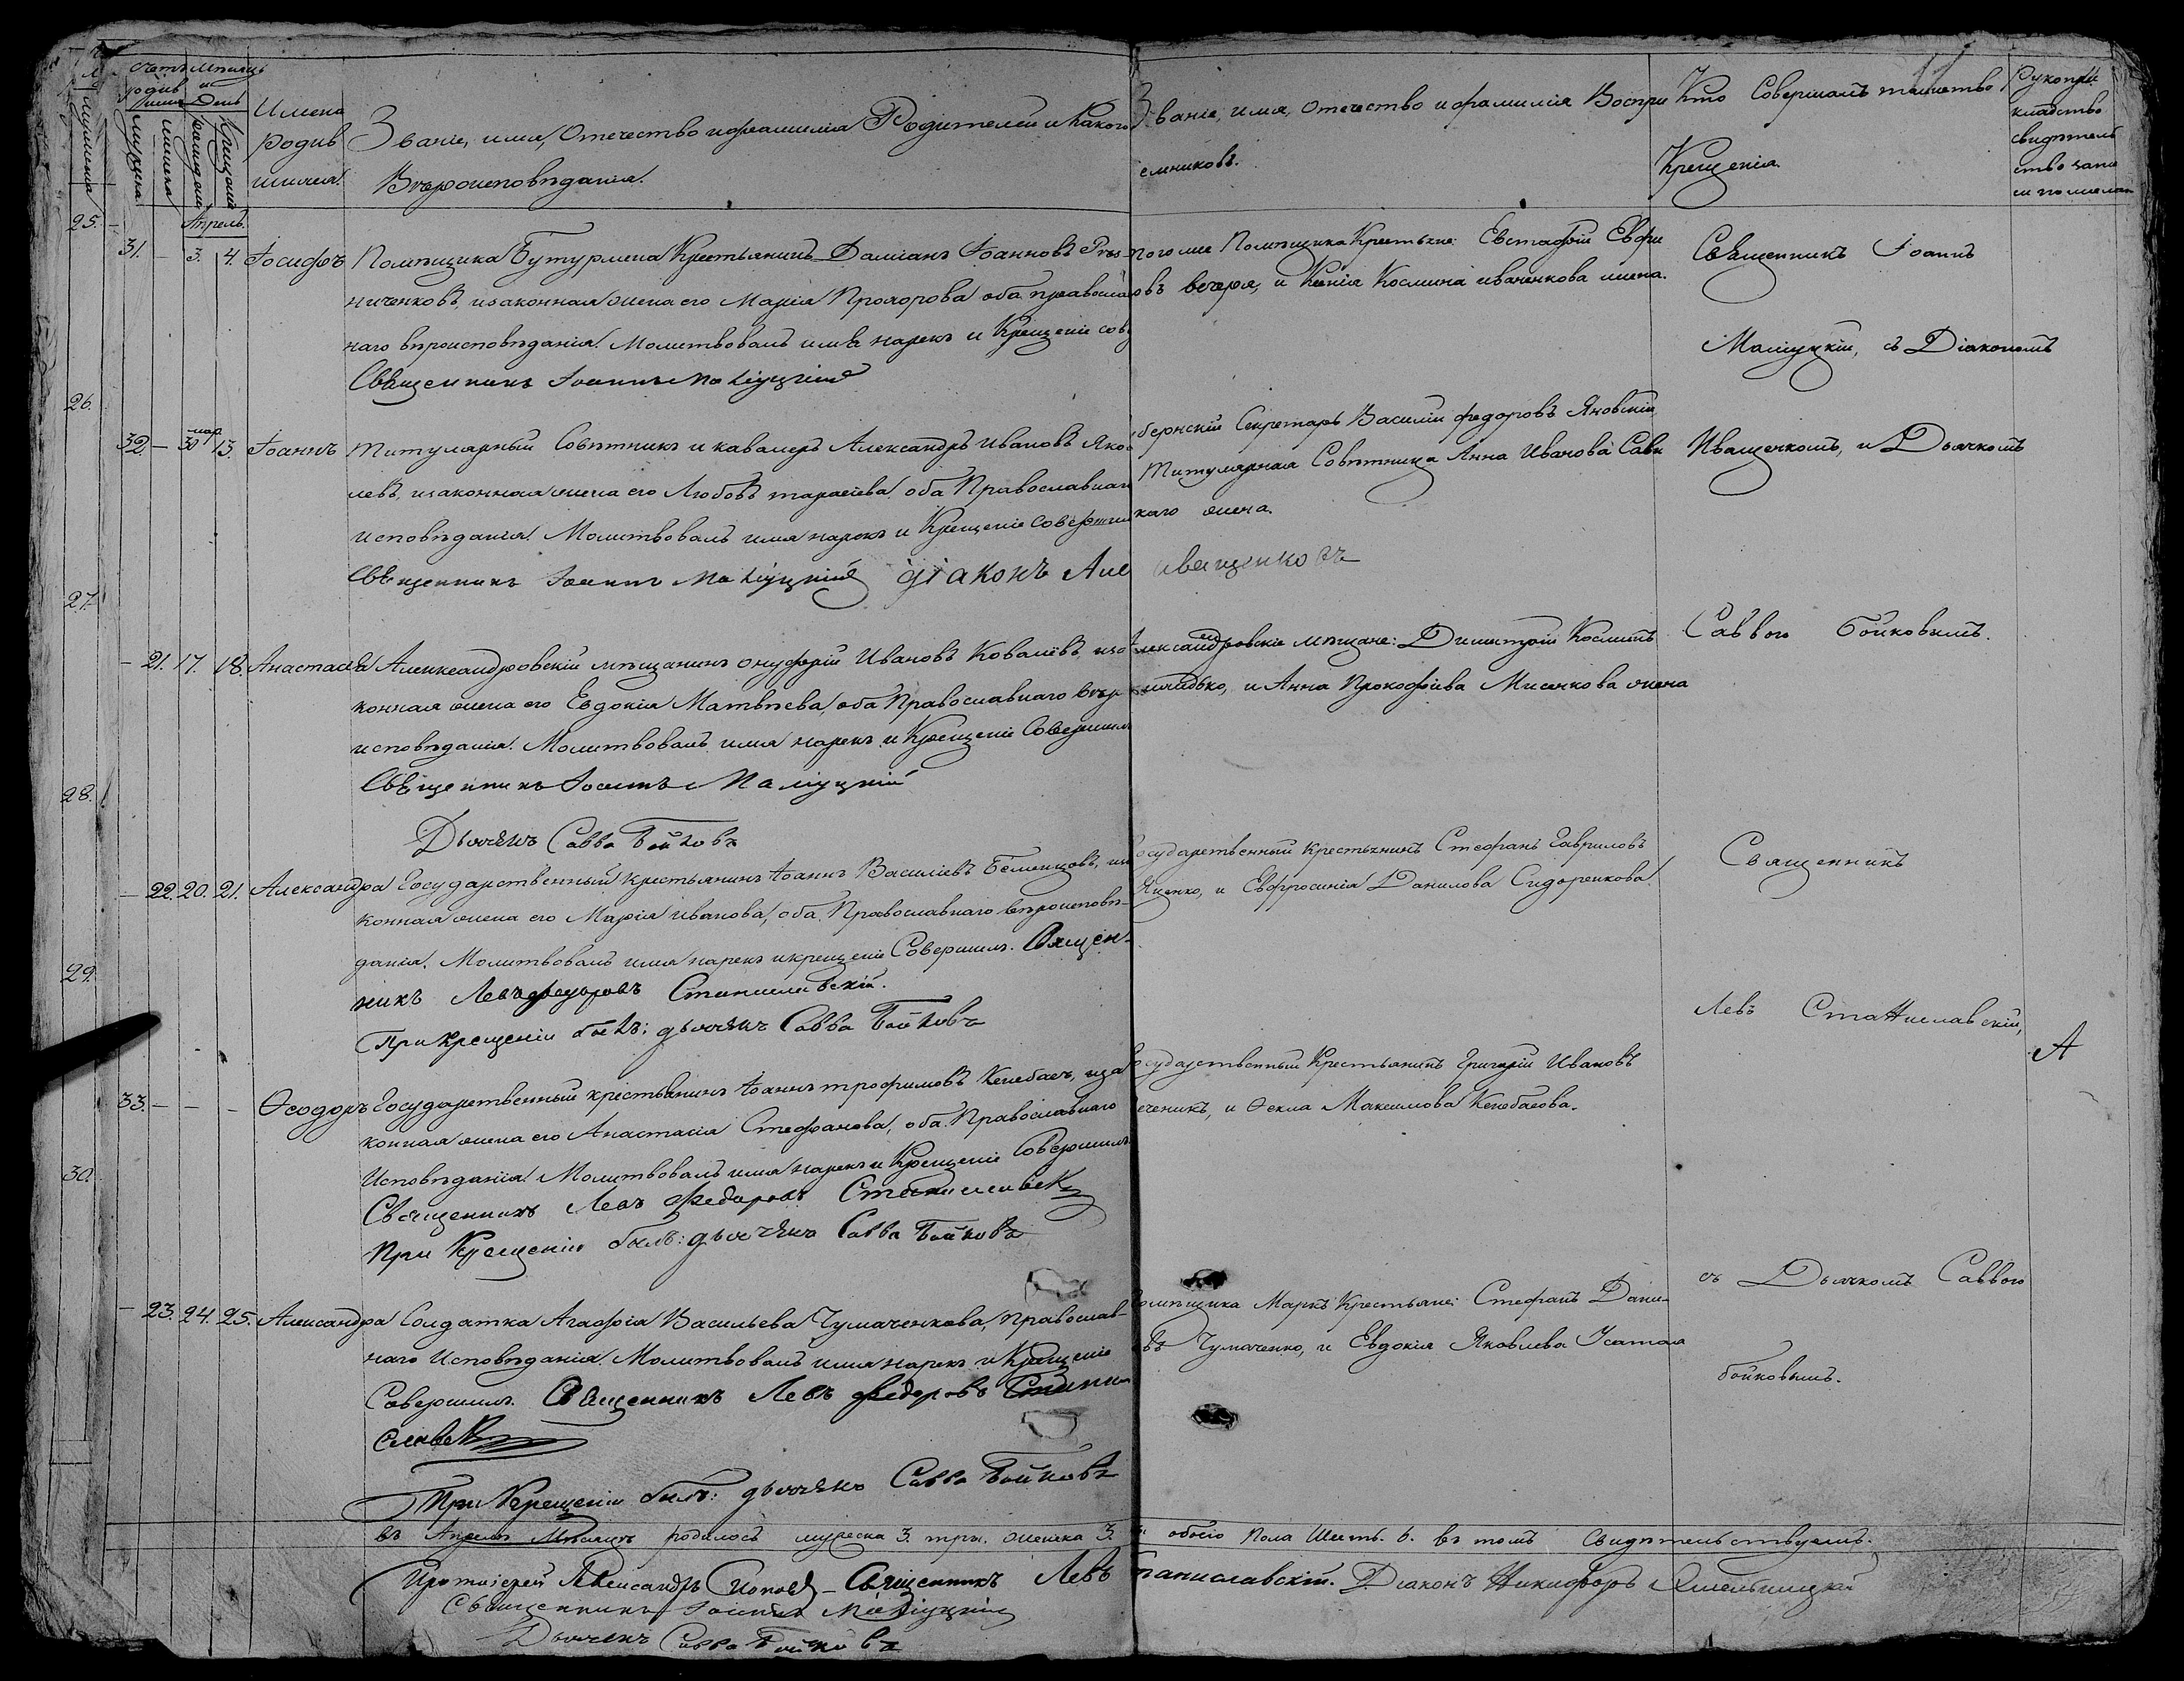 Счетъ
родив
шихся
Мѣсяцъ
и
День
мужеска
женска
рожденія
Крещенія
Имена
родив
шихся.
Званіе, имя, Отечество и фамилія Родителей и Какого
Вѣроисповѣданія.
Званіе, имя, Отечество и фамилія Воспри
емниковъ.
Кто Совершалъ таинство
Крещенія.
Рукопри
кладство
свидѣтель
ство запи
си по желан
Апрель.
25.
31. — 3. 4. Іосифъ Помѣщика Крестьянинъ Даміанъ Іоанновъ
ниченковъ, и законная жена его Марія Прохорова оба православ
наго вѣроисповѣданія. Молитвовалъ имя нарекъ и Крещеніе сов
Священникъ Іоаннъ
того же Помѣщика Крестьяне: Евстафій
и Ксенія Космина иваненкова жена.
Священникъ Іоаннъ
съ Діакономъ
26.
32. — мар. 30 13. Іоаннъ Титулярный Совѣтникъ и кавалеръ Александръ Ивановъ Яко
левъ, и законная жена его Любовь тарасіева оба Православнаго
исповѣданія. Молитвовалъ имя нарекъ и Крещеніе Соверши
Священникъ Іоаннъ діаконъ Але иващенковъ
бернскій Секретарь Василій федоровъ Яновскій
Титулярная Совѣтница Анна Иванова Сави
каго жена.
Иващенкомъ, и Дьячкомъ
27.
— 21. 17. 18. Анастасія Александровскій мѣщанинъ онуфрій Ивановъ Ковалевъ, и за
конная жена его Евдокія Матвѣева, оба Православнаго вѣро
исповѣданія. Молитвовалъ имя нарекъ и Крещеніе Совершилъ
Священникъ Іоаннъ
Дьячекъ Савва Бойковъ
Александровскіе мѣщане: Димитрій Косминъ
и Анна Прокофіева Мисенкова жена
Саввою бойковымъ.
28.
— 22. 20. 21. Александра Государственный крестьянинъ Іоаннъ Василіевъ и за
конная жена его Марія иванова, оба Православнаго вѣроисповѣ-
данія. Молитвовалъ имя нарекъ и крещеніе Совершилъ. Священ-
никъ Левъ федоровъ Станиславскій.
При Крещеніи былъ: дьячекъ Савва Бойковъ
Государственный крестьянинъ Стефанъ Гавриловъ
Яценко, и Евфросинія Данилова Сидоренкова.
Священникъ
Левъ Станиславскій,
29.
33. — — — Ѳеодоръ Государственный крестьянинъ Іоаннъ трофимовъ и за
конная жена его Анастасія Стефанова, оба Православнаго
Исповѣданія. Молитвовалъ имя нарекъ и Крещеніе Совершилъ
Священникъ Левъ Федоровъ Станиславск
При Крещеніи былъ: дьячекъ Савва Бойковъ
Государственный Крестьянинъ Григорій Ивановъ
и Ѳекла Максимова
А
30.
— 23. 24. 25. Александра Солдатка Агафія Васильева Чумаченкова, Православ-
наго Исповѣданія. Молитвовалъ имя нарекъ и Крещеніе
Совершилъ. Священникъ Левъ Федоровъ Стани
славск
При Крещеніи былъ: дьячекъ Савва Бойковъ
помѣщика Маркъ Крестьяне: Стефанъ Дани-
въ Чумаченко, и Евдокія Яковлева Усатая
съ Дьячкомъ Саввою
бойковымъ.
въ Апрелѣ Мѣсяцѣ родилось мужеска 3. три. женска 3. обоего пола Шесть. 6. въ томъ Свидѣтельствуемъ.
Протоіерей Александръ Священникъ Левъ Станиславскій. Діаконъ Никифоръ
Священникъ Іоаннъ
Дьячекъ Савва Бойковъ